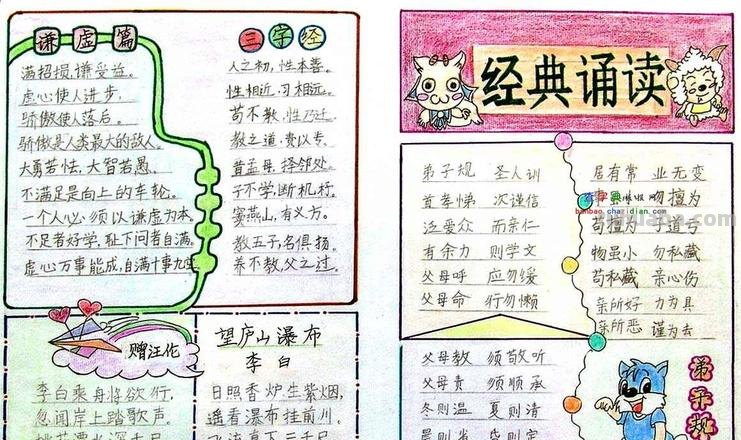 谦虚篇
满招损,谦受益。
虚心使人进步,
骄傲使人落后。
骄傲是人类最大的敌人。
大勇若怯,大智若愚。
不满足是向上的车轮。
一个人心须以谦虚为本。
不足者好学,耻下问者自满。
虚心万事能成,自满十事九空。
三字经
人之初,性本善。
性相近,习相远。
苟不教,性乃迁。
教之道,贵以专。
昔孟母,择邻处。
子不学,断机杼。
窦燕山,有义方。
教五子,名俱扬。
养不教,父之过。
赠汪伦
李白乘舟将欲行,
忽闻岸上踏歌声。
望庐山瀑布
李白
日照香炉生紫烟,
遥看瀑布挂前川。
经典诵读
弟子规 圣人训
首孝悌 次谨信
泛爱众 而亲仁
有余力 则学文
父母呼 应勿缓
父母命 行勿懒
居有常 业无变
勿擅为
苟擅为 子道亏
物虽小 勿私藏
苟私藏 亲心伤
亲所好 力为具
亲所恶 谨为去
父母教 须敬听
父母责 须顺承
冬则温 夏则清
弟子规
chazidian.com